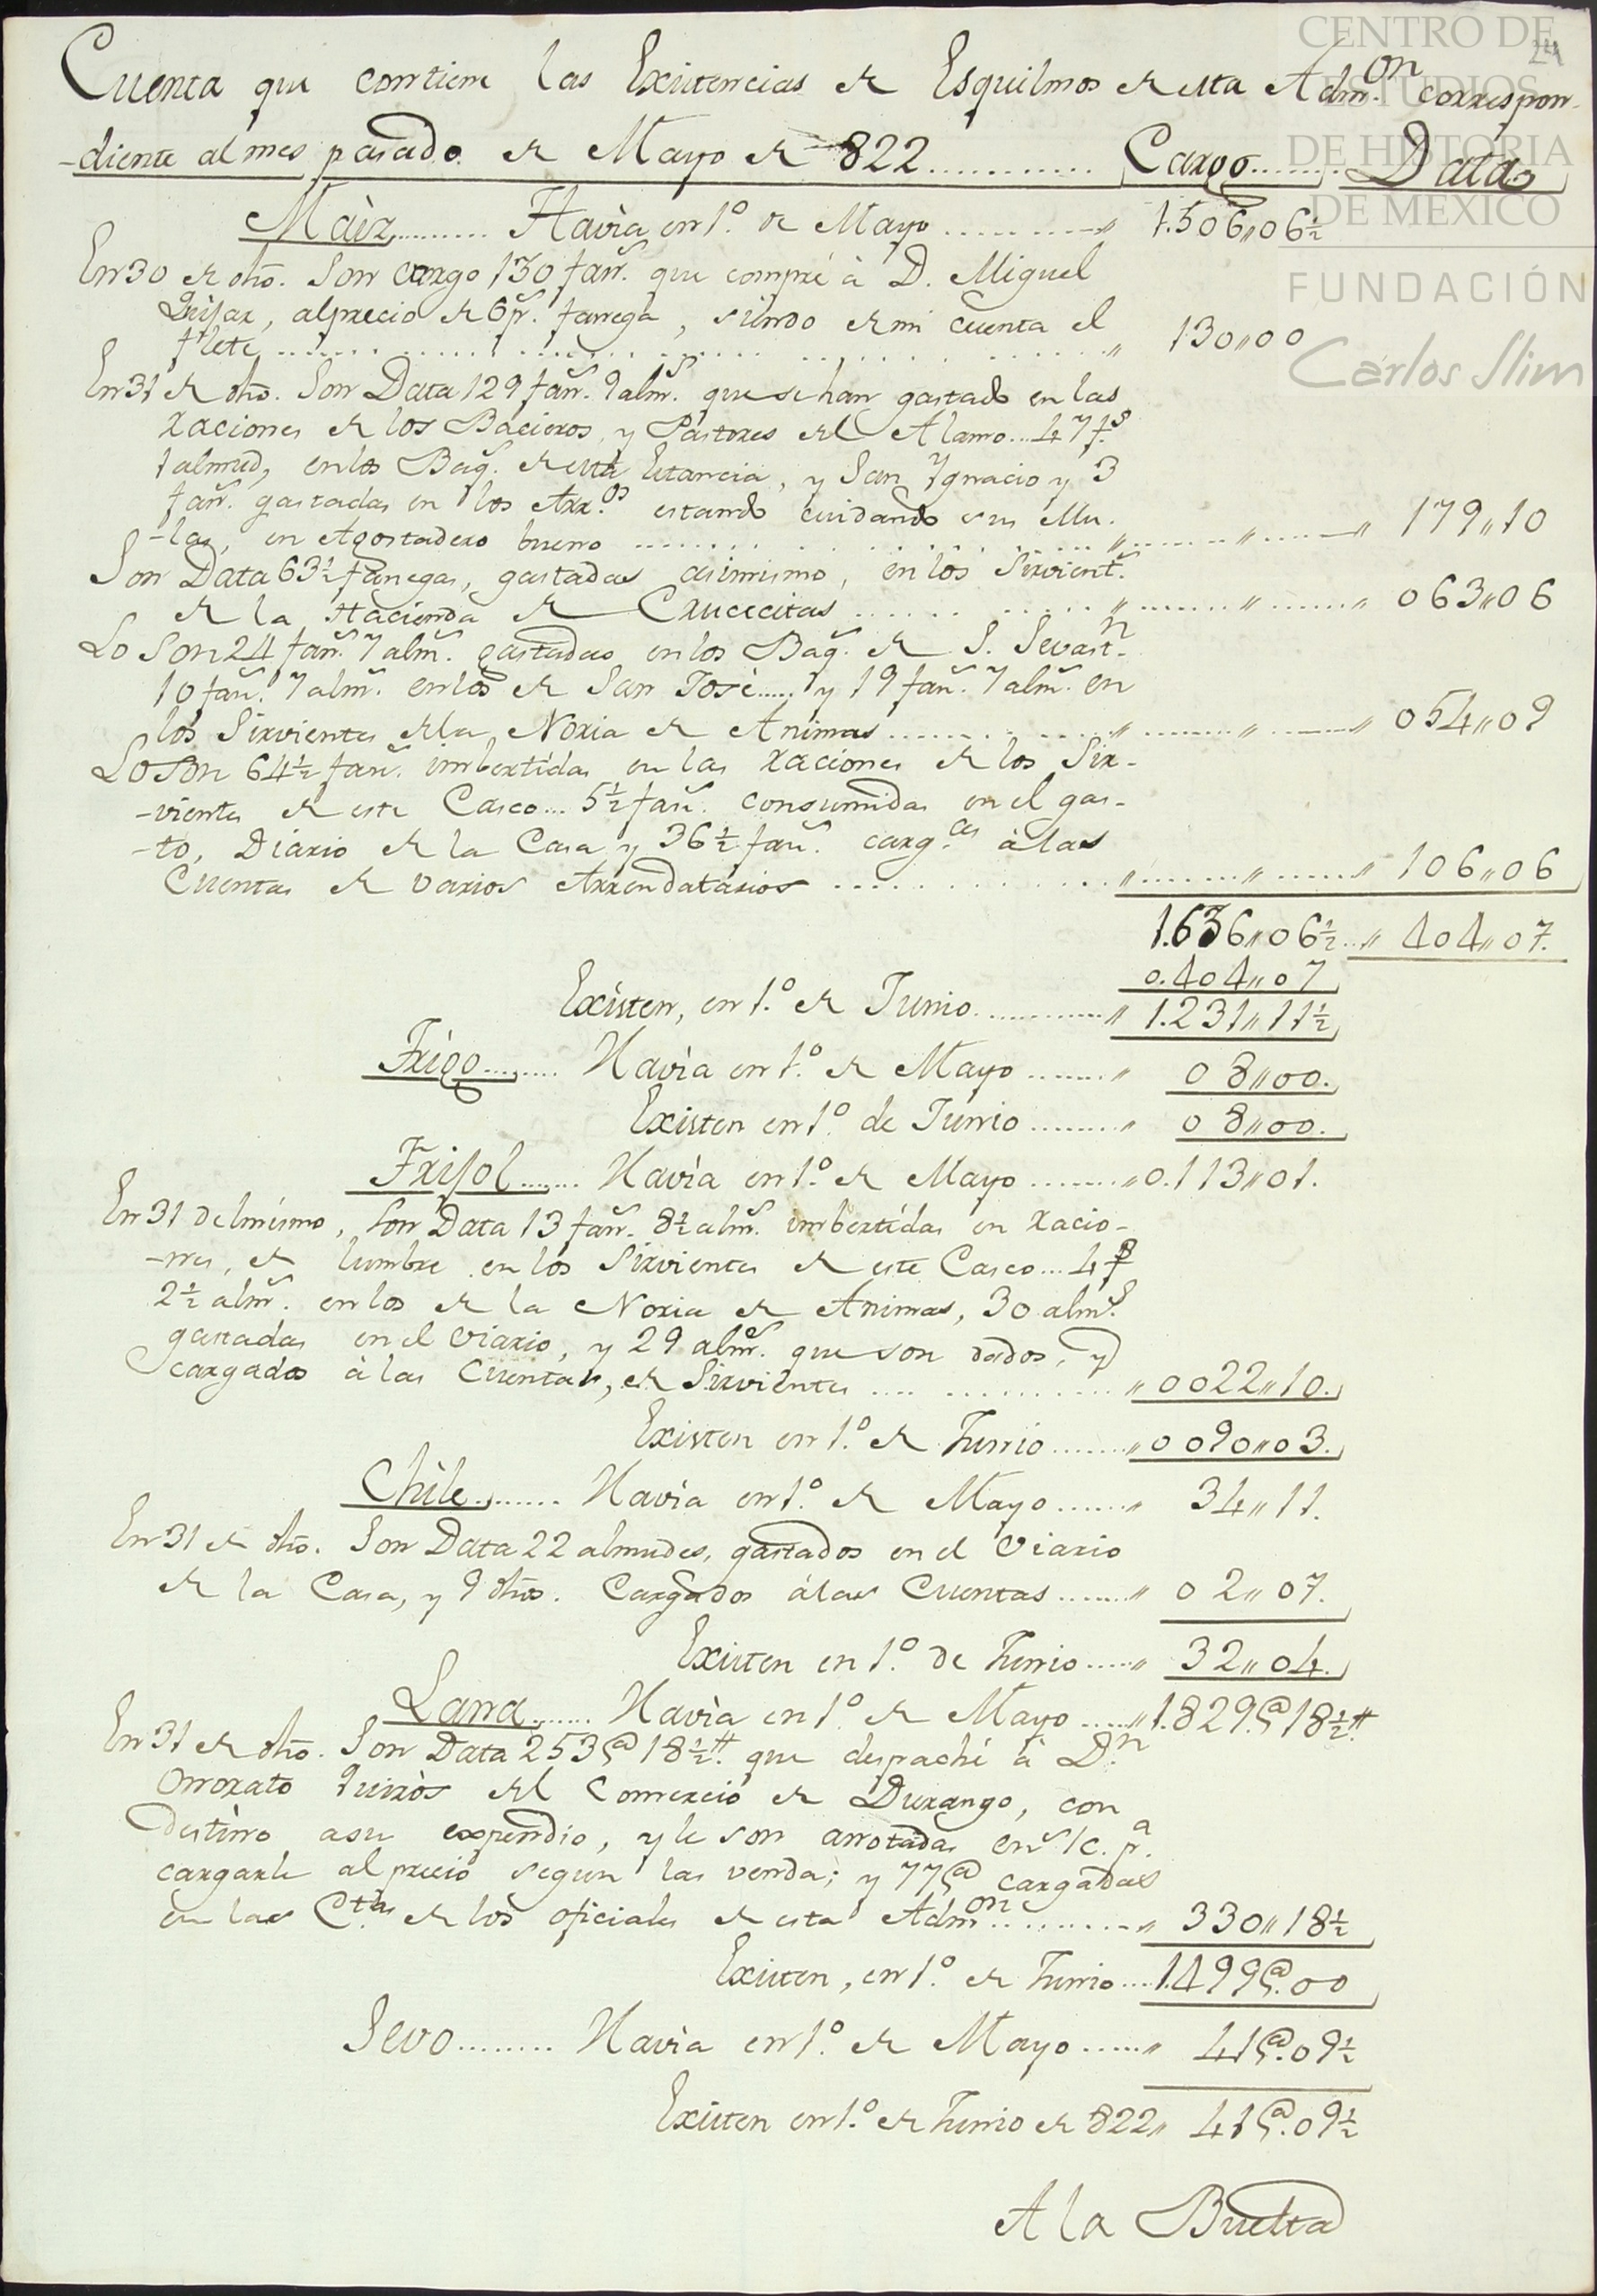 CENTRO DE
ESTUDIOS
DE HISTORIA
DE MEXICO
FUNDACIÓN
Carlos Slim
24
Cuenta que contiene las Existencias de Esquilmos de esta Adm.on correspon-
-diente al mes pasado de Mayo de 822............ Cargo......... Data
Maiz.......... Havia en 1.º de Mayo .......... " 1.506"06½
En 30 de dho. Son cargo 130 fan.s que compré à D. Miguel
Quijar, al precio de 6 r.s fanega, siendo de mi cuenta el
flete .......... " 130"00
En 31 de dho. Son Data 129 fan.s 9 alm.s que se han gastado en las
raciones de los Bacieros, y Pastores del Alamo... 47 f.s
1 almud, en los Baq.s de esta Estancia, y San Ygnacio y 3
fan.s gastadas en los Arr.os estando cuidando sus Mu-
-las, en Agostadero bueno .......... " ........ " ....... " 179"10
Son Data 63½ fanegas, gastadas asimismo, en los Sirvient.s
de la Hacienda de Crucecitas .......... " ........ " ....... " 063"06
Lo Son 24 fan.s 7 alm.s gastadas en los Baq.s de S. Sevast.n
10 fan.s 7 alm.s en los de San José..... y 19 fan.s 7 alm.s en
los Sirvientes de la Noria de Animas .......... " ........ " ....... " 054"09
Lo Son 64½ fan.s imbertidas en las raciones de los Sir-
-vientes de este Casco... 5½ fan.s consumidas en el gas-
-to, Diario de la Casa y 36½ fan.s carg.as à las
Cuentas de varios Arrendatarios .......... " ........ " ....... " 106"06
1.636"06½.." 404"07.
0.404"07
Existen, en 1.º de Junio .......... " 1.231"11½
Trigo......... Havia en 1.º de Mayo ........ " 08"00.
Existen en 1.º de Junio ......... " 08"00.
Frijol....... Havia en 1.º de Mayo ........ "0.113"01.
En 31 del mismo, Son Data 13 fan.s 8½ alm.s imbertidas en racio-
-nes, de lumbre en los Sirvientes de este Casco... 4 f.s
2½ alm.s en los de la Noria de Animas, 30 alm.s
gastadas en el Diario, y 29 alm.s que son dados, y
cargados à las Cuentas, de Sirvientes .... .......... "0022"10.
Existen en 1.º de Junio ........ "0090"03.
Chile........ Havia en 1.º de Mayo ....... " 34"11.
En 31 de dho. Son Data 22 almudes, gastados en el Diario
de la Casa, y 9 dhos. Cargados à las Cuentas ....... " 02"07.
Existen en 1.º de Junio ..... " 32"04.
Lana....... Havia en 1.º de Mayo ..... "1.829.@18½.tt
En 31 de dho. Son Data 253@18½.tt que despaché à D.n
Onorato Quirós del Comercio de Durango, con
destino a su expendio, y le son anotadas en s/c. p.a
cargarle al precio segun las venda; y 77@ cargadas
en las Ctas de los oficiales de esta Adm.on .......... " 330"18½
Existen, en 1.º de Junio .... 1.499@.00
Sevo......... Havia en 1.º de Mayo ...... " 41@.09½
Existen en 1.º de Junio de 822" 41@.09½
A la Buelta